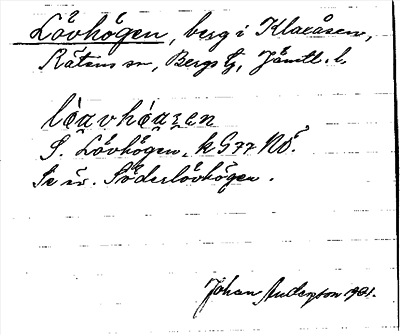 Lövhögen, berg i Klaråsen,
Rätans sn, Bergs tg, Jämtl. l.
S. Lövhögen, k G 77 NÖ.
Se äv. Söderlövhögen.
Johan Anderson 1931.